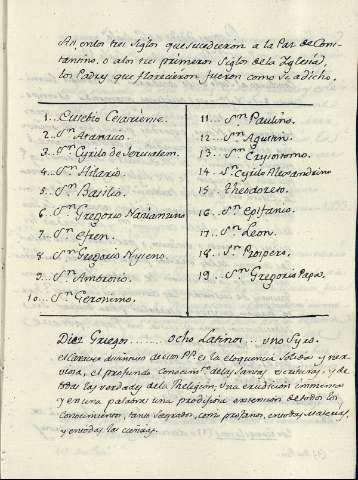 Assi, en los tres siglos que sucedieron a la Paz de Cons-
tantino, o a los tres primeros siglos de la Iglesia,
los Padres que florecieron fueron como se a dicho.
1... Eusebio Cesariense.
2... Sn. Atanacio.
3... Sn. Cyrilo de Jerusalem.
4... Sn. Hilario.
5... Sn. Basilio.
6 Sn. Gregorio Nacianzeno
7... Sn. Efren.
8... Sn. Gregorio Nyseno.
9... Sn. Ambrosio.
10... Sn. Geronimo.
11... Sn. Paulino.
12... Sn. Agustin.
13... Sn. Crysostomo.
14... Sn. Cyrilo Alexandrino
15 Theodoreto.
16... Sn. Epifanio.
17... Sn. Leon.
18... Sn. Prospero.
19... Sn. Gregorio Papa.
Diez Griegos ........ ocho Latinos ... uno Syro.
el Caracter distintivo de estos PP. es la eloquencia solida y ner-
viosa, el profundo conocimto. de las Santas escrituras, y de
todas las verdades de la Religion, Una erudicion inmensa
y en una palabra una prodigiosa extension de todos los
conocimientos, tanto sagrados, como profanos, en todas materias,
y en todas las ciencias.